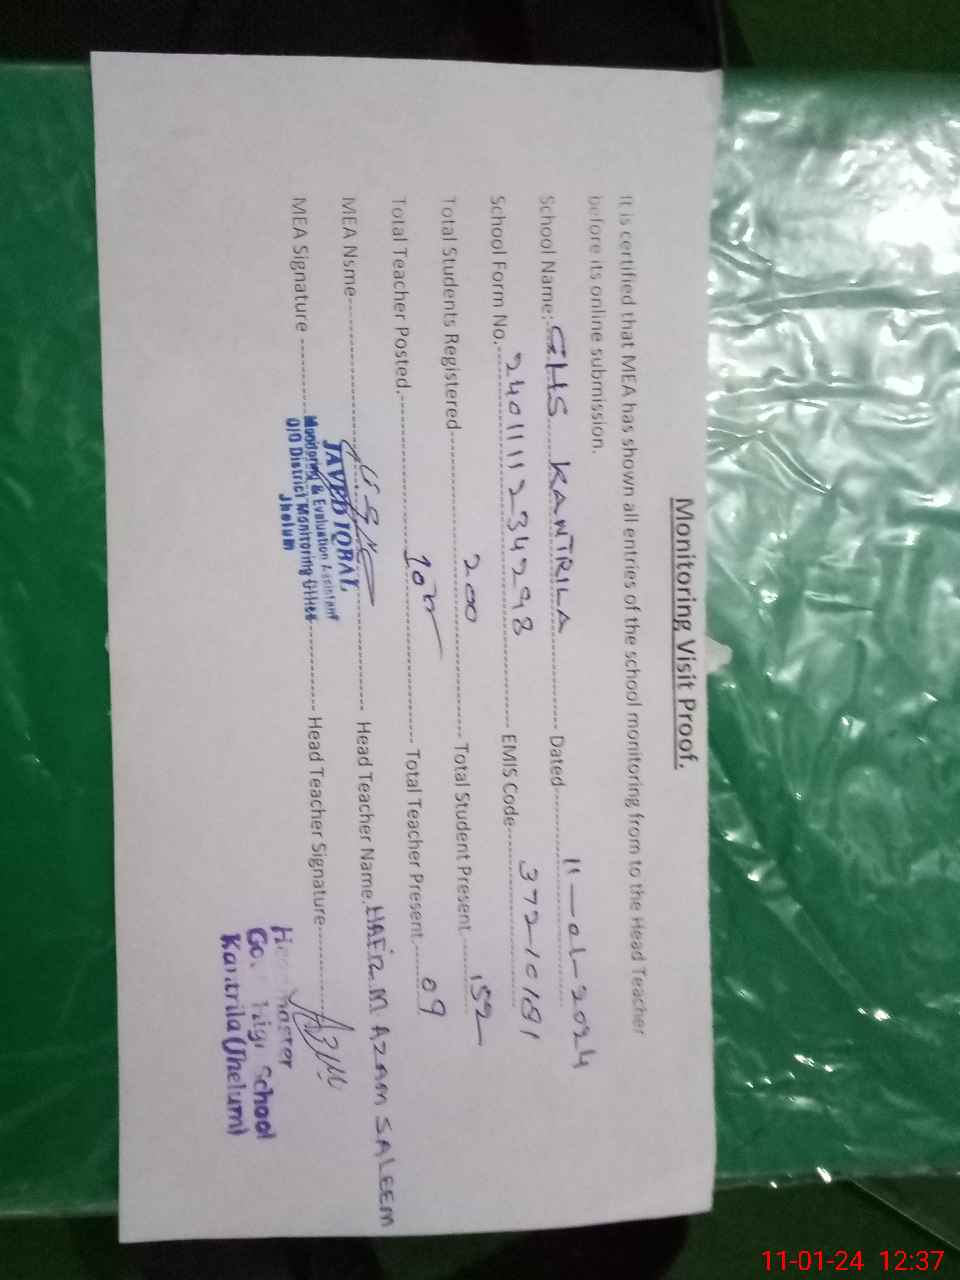 Monitoring Visit Proof.
It is certified that MEA has shown all entries of the school monitoring from to the Head Teacher
before its online submission.
School Name: GHS KANTRILA Dated 11-01-2024
School Form No. 2401111234298 EMIS Code 37210181
Total Students Registered 200 Total Student Present 152
Total Teacher Posted. 10 Total Teacher Present. 09
MEA Nsme Head Teacher Name. HAFIZ.M AZAM SALEEM
MEA Signature Head Teacher Signature
JAVED IQBAL
Monitoring & Evaluation Assistant
O/O District Monitoring Office
Jhelum
School
Kantrila (Jhelum)
11-01-24 12:37